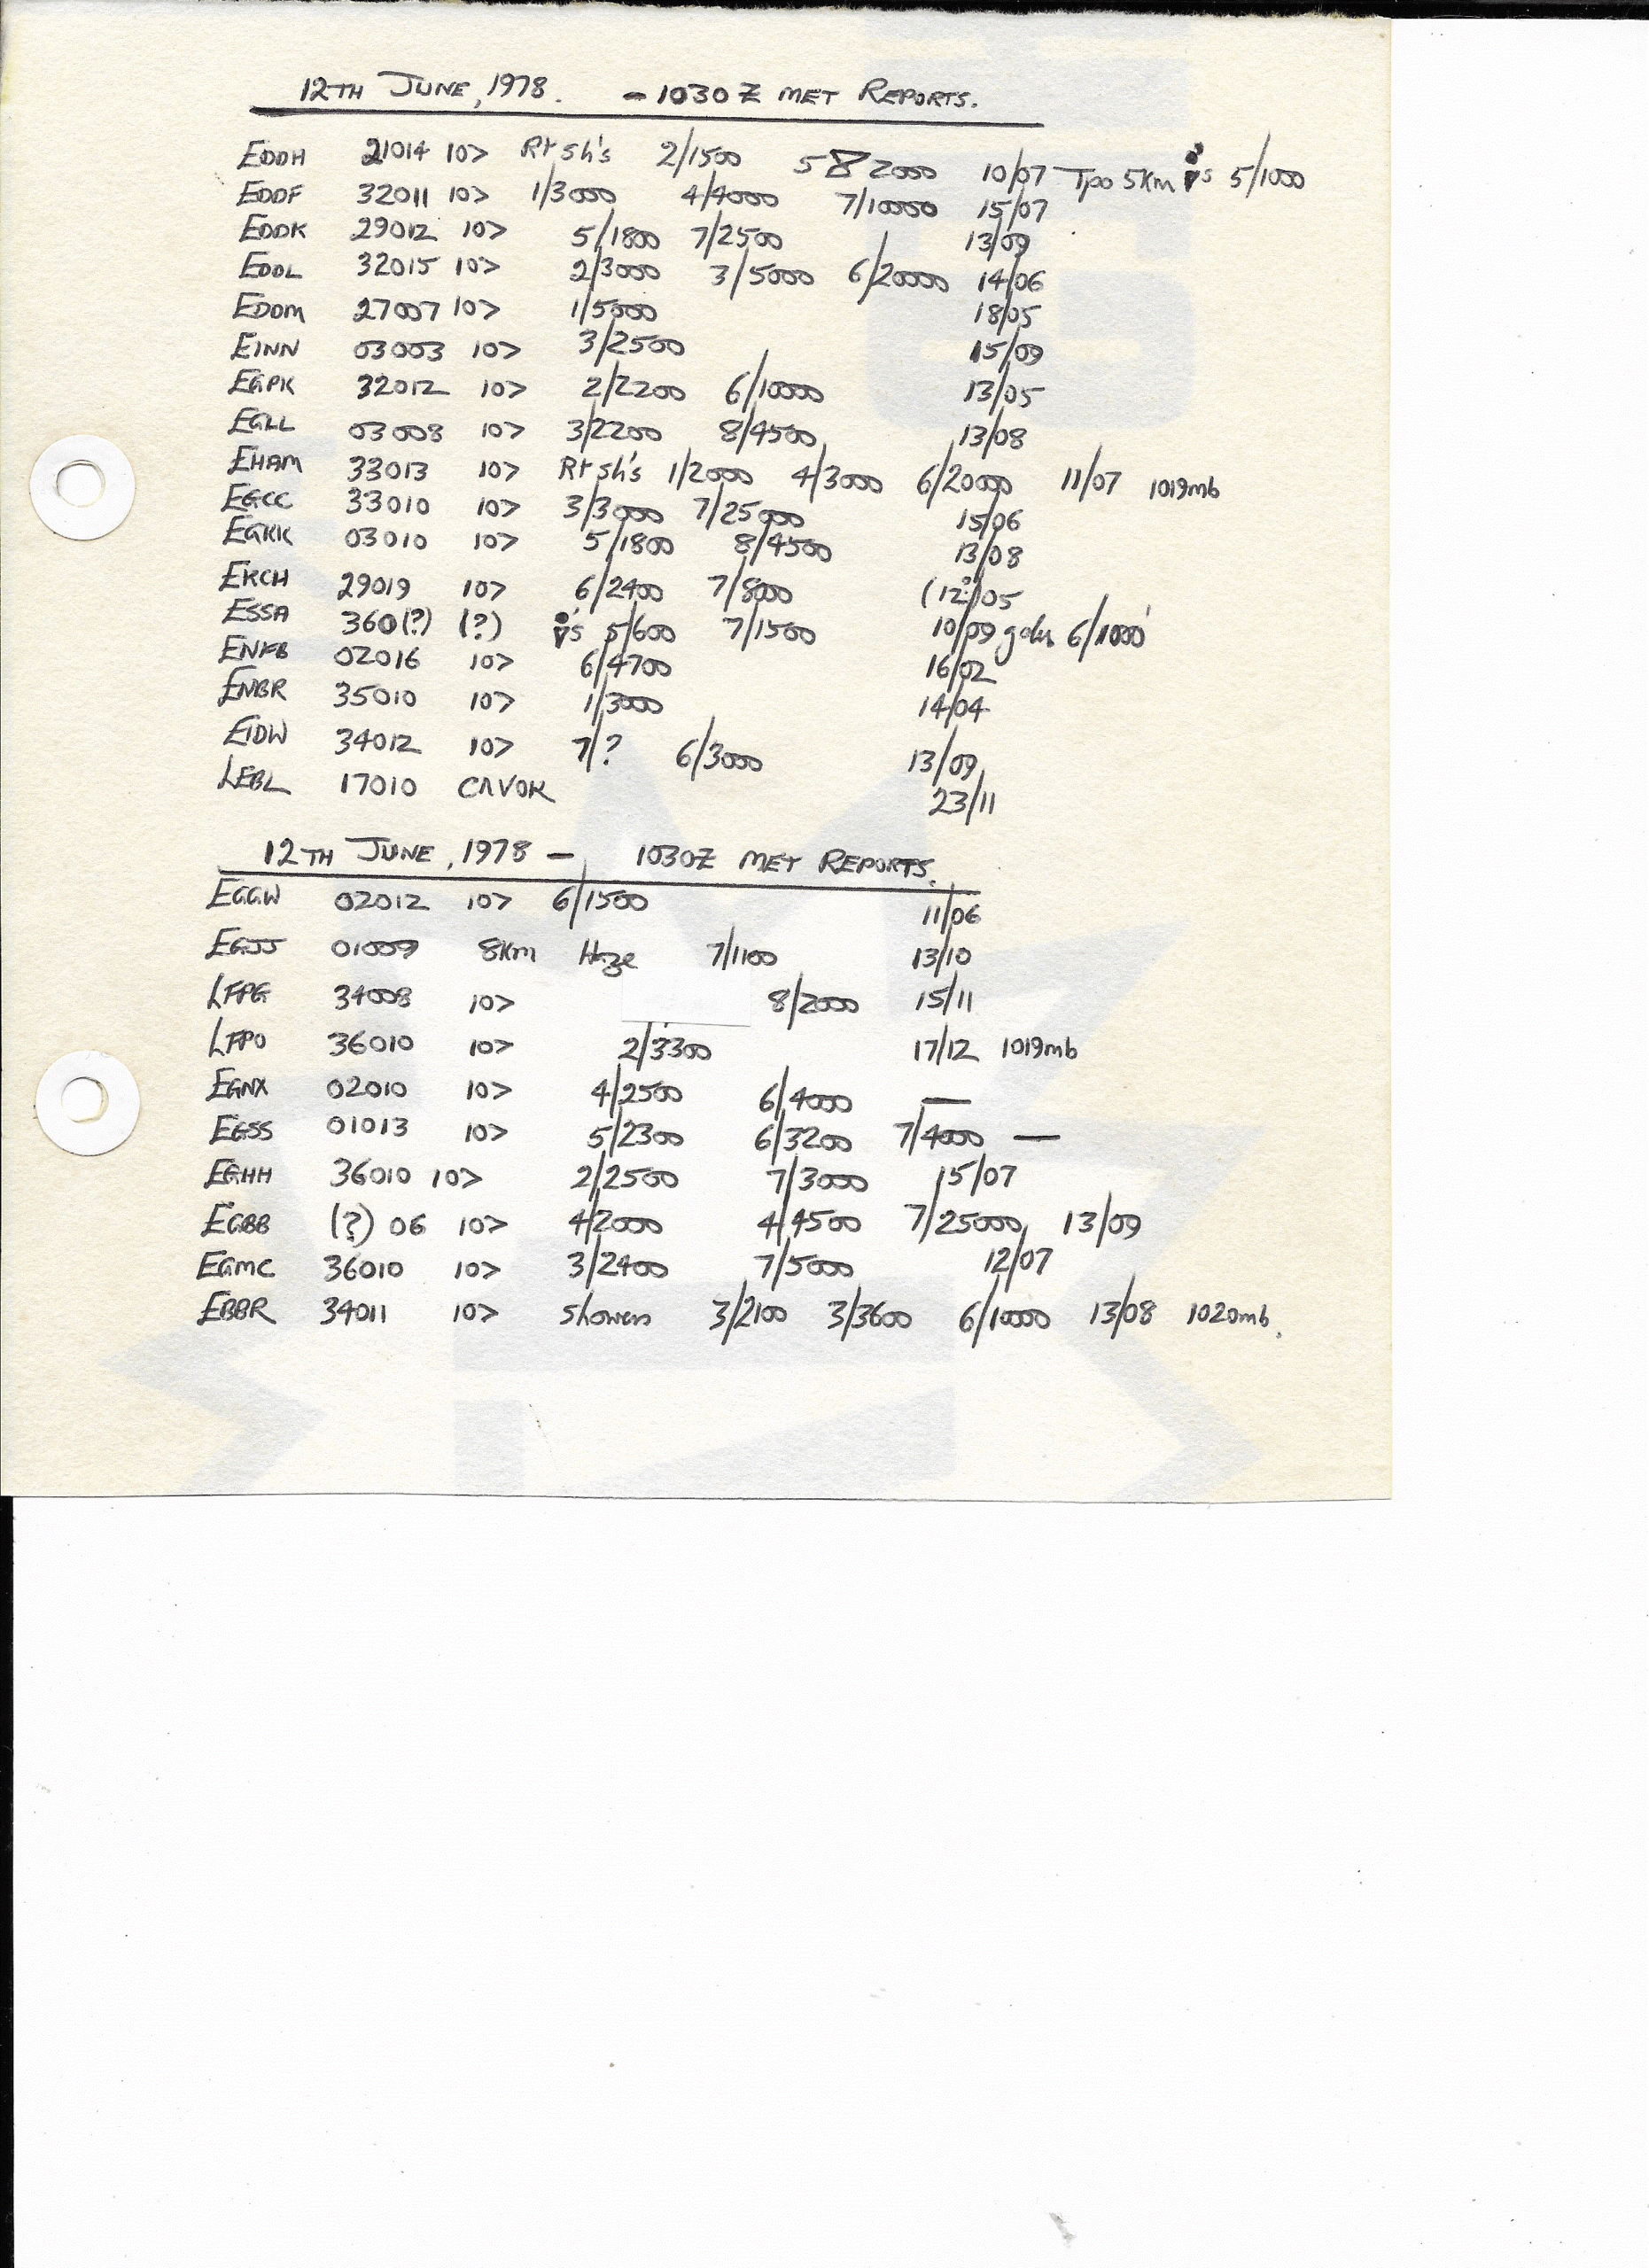 12TH JUNE, 1978. - 1030Z MET REPORTS.
EDDH 21014 10> Rt Sh's 2/1500 5 8 2000 10/07 Tpo 5km s 5/1000
EDDF 32011 10> 1/3000 4/4000 7/10000 15/07
EDDK 29012 10> 5/1800 7/2500 13/09
EDDL 32015 10> 2/3000 3/5000 6/20000 14/06
EDDM 27007 10> 1/5000 18/05
EINN 03003 10> 3/2500 15/09
EGPK 32012 10> 2/2200 6/10000 13/05
EGLL 03008 10> 3/2200 8/4500 13/08
EHAM 33013 10> Rt Sh's 1/2000 4/3000 6/20000 11/07 1019mb
EGCC 33010 10> 3/3000 7/25000 15/06
EGKK 03010 10> 5/1800 8/4500 13/08
EKCH 29019 10> 6/2400 7/8000 (12?)/05
ESSA 360(?) (?) s 5/600 7/1500 10/09 6/1000'
ENFB 02016 10> 6/4700 16/02
ENBR 35010 10> 1/3000 14/04
EIDW 34012 10> 7/? 6/3000 13/09
LEBL 17010 CAVOK 23/11
12TH JUNE, 1978 - 1030Z MET REPORTS.
EGGW 02012 10> 6/1500 11/06
EGJJ 01009 8km Haze 7/1100 13/10
LFPG 34008 10> 8/2000 15/11
LFPO 36010 10> 2/3300 17/12 1019mb
EGNX 02010 10> 4/2500 6/4000 —
EGSS 01013 10> 5/2300 6/3200 7/4000 —
EGHH 36010 10> 2/2500 7/3000 15/07
EGBB (?) 06 10> 4/2000 4/4500 7/25000 13/09
EGMC 36010 10> 3/2400 7/5000 12/07
EBBR 34011 10> Showers 3/2100 3/3600 6/10000 13/08 1020mb.